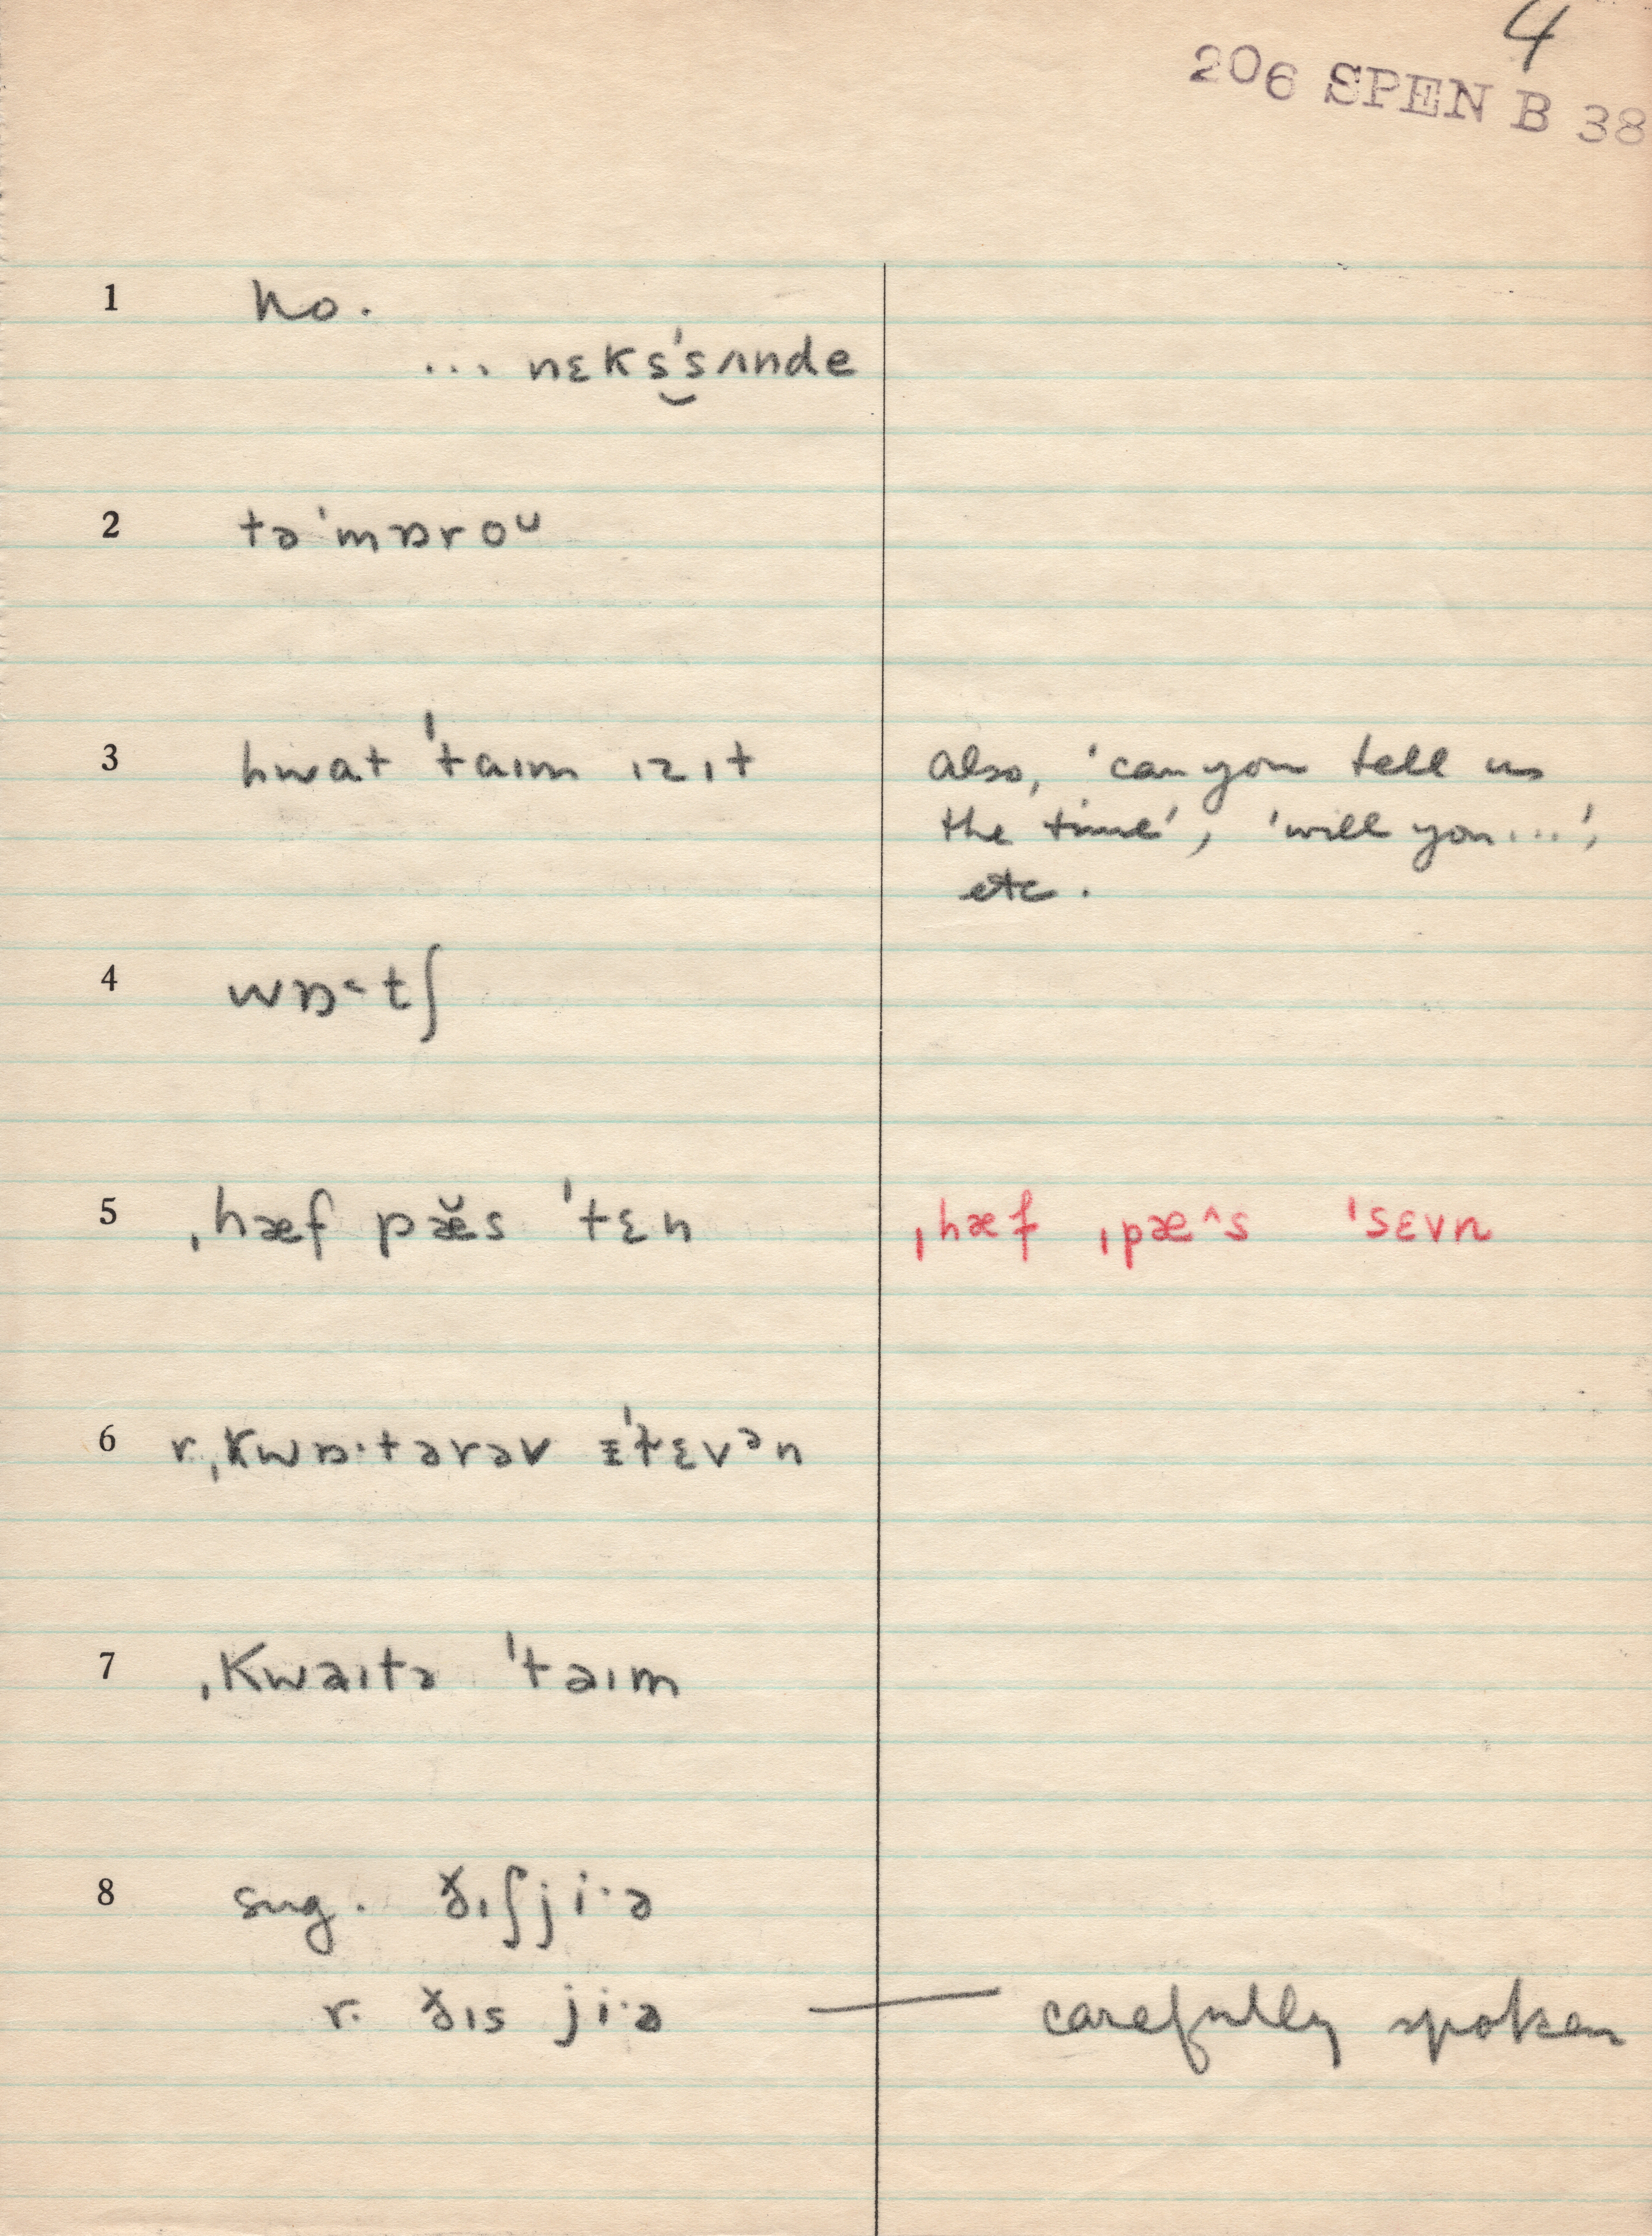 4
206 SPEN B 38
1 no.
... nɛks̬‿ˈsʌnde
2 təˈmɒroᴜ
3 hwat ˈtaɪm ɪzɪt
also, 'can you tell us
the time', 'will you...',
etc.
4 wɒ˂tʃ
5 ˌhæf pæ̆s ˈtɛn
ˌhæf ˌpæ^s ˈsɛvn
6 r. ˌkwɒ·tərəv ˈɛvᵊn
7 ˌKwaɪtə ˈtaɪm
8 sug. ðɪʃ ji·ə
r. ðɪs ji·ə — carefully spoken